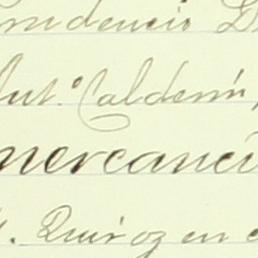 Prudencio D
Ant.º Calderin,
mercancí
Quiroz en